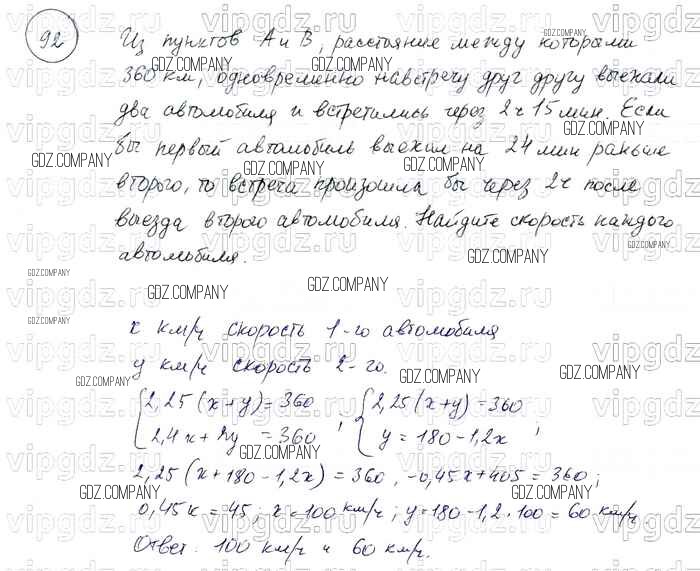 92
Из пунктов А и В, расстояние между которыми
360 км, одновременно навстречу друг другу выехали
два автомобиля и встретились через 2ч 15 мин. Если
бы первый автомобиль выехал на 24 мин раньше
второго, то встреча произошла бы через 2ч после
выезда второго автомобиля. Найдите скорость каждого
автомобиля.
x км/ч скорость 1-го автомобиля
y км/ч скорость 2-го.
{2,25(x+y)=360 , {2,25(x+y)=360
{2,4x+2y =360 , {y=180-1,2x ,
2,25(x+180-1,2x)=360, -0,45x+405=360;
0,45x=45; x=100 км/ч; y=180-1,2·100=60 км/ч
Ответ. 100 км/ч и 60 км/ч.
GDZ.COMPANY
vipgdz.ru